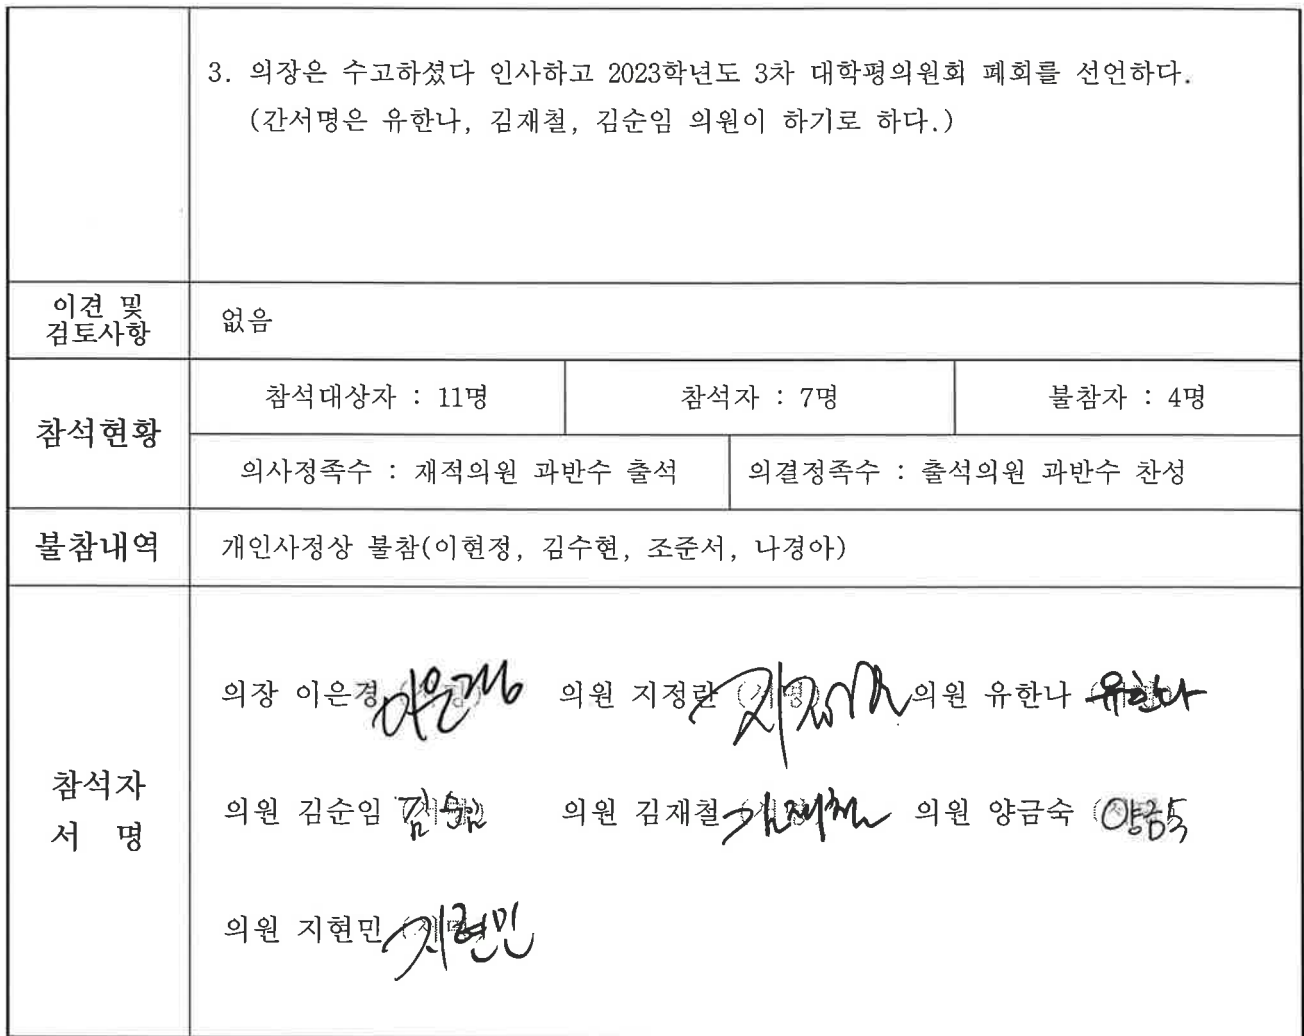 3. 의장은 수고하셨다 인사하고 2023학년도 3차 대학평의원회 폐회를 선언하다.
(간서명은 유한나, 김재철, 김순임 의원이 하기로 하다.)
이견 및
검토사항
없음
참석현황
참석대상자 : 11명
참석자 : 7명
불참자 : 4명
의사정족수 : 재적의원 과반수 출석
의결정족수 : 출석의원 과반수 찬성
불참내역
개인사정상 불참(이현정, 김수현, 조준서, 나경아)
참석자
서 명
의장 이은경 이은경 의원 지정란 의원 유한나 유한나
의원 김순임 김순임 의원 김재철 김재철 의원 양금숙 양금숙
의원 지현민 지현민